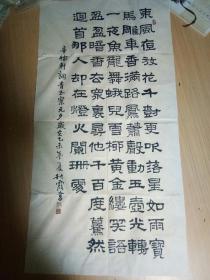 東風夜放花千樹更吹落星如雨寶
馬雕車香滿路鳳簫聲動玉壺光轉
一夜魚龍舞蛾兒雪柳黃金縷笑語
盈盈暗香去眾裏尋他千百度驀然
迴首那人卻在燈火闌珊處
辛稼軒詞青玉案元夕歲在乙未年夏秋霞書